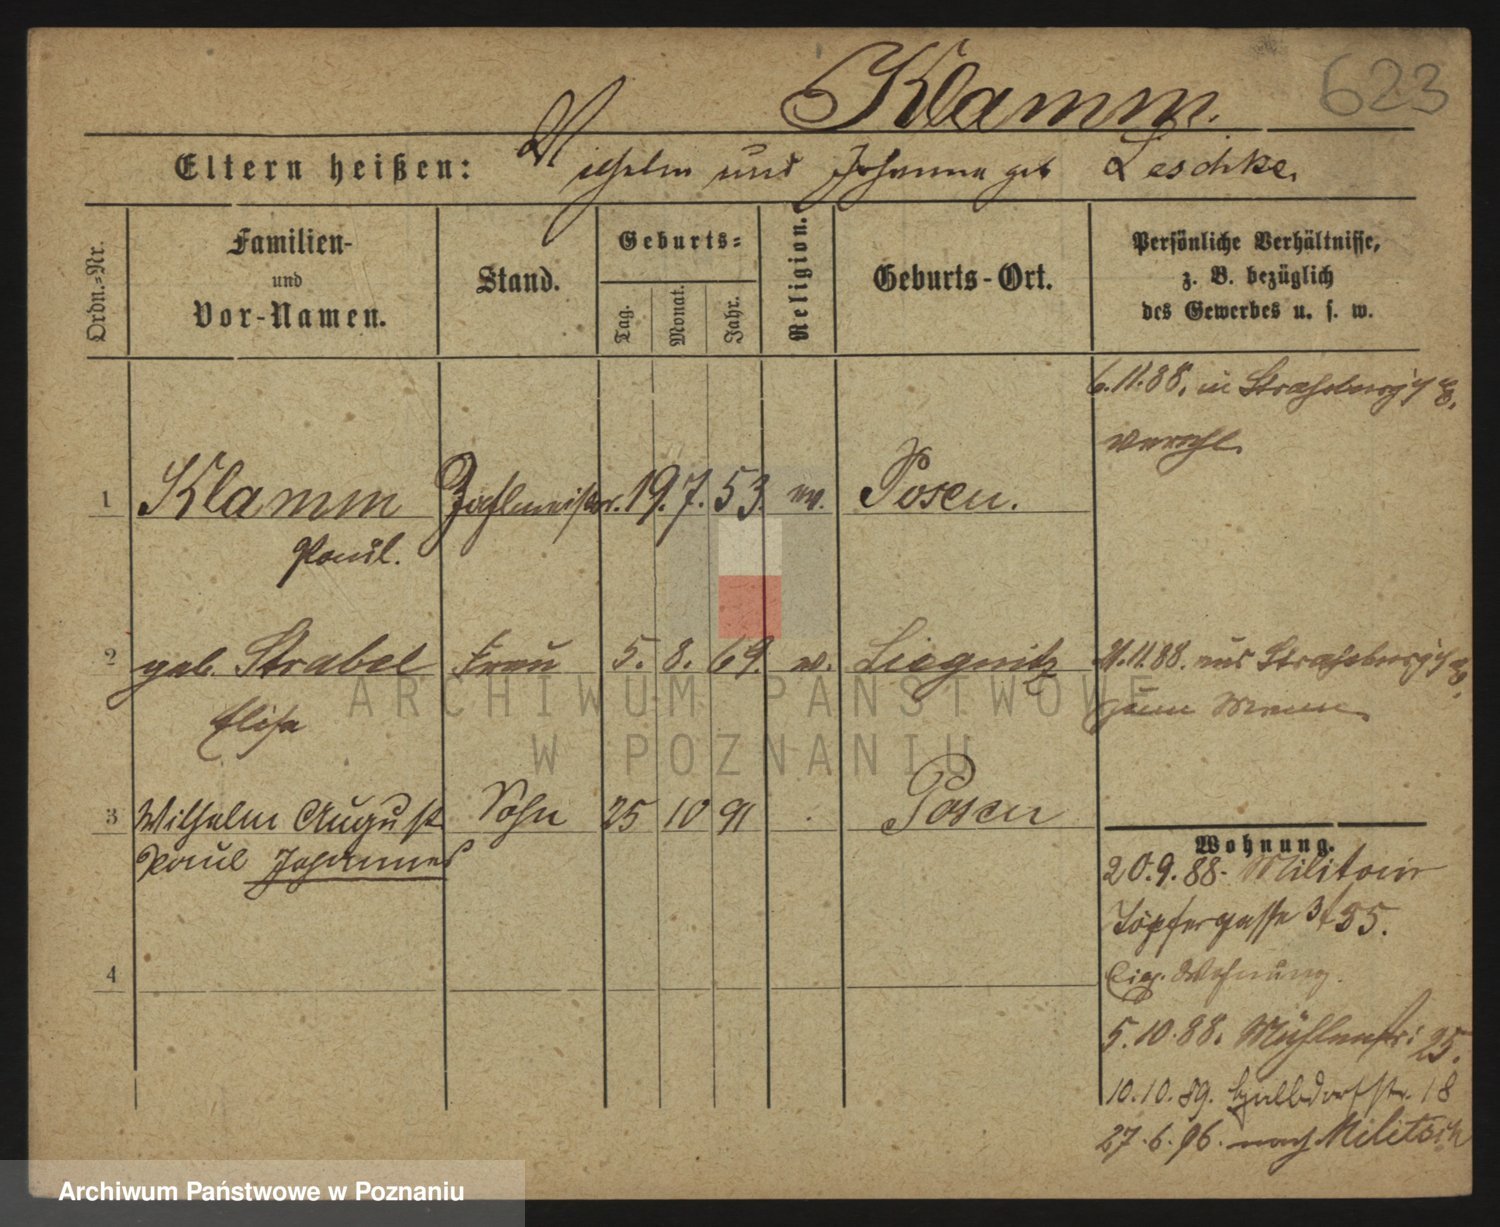 623
Klamm.
Eltern heißen: Wilhelm und Johanna geb Leschke.
Ordn.-Nr.
Familien-
und
Vor-Namen.
Stand.
Geburts=
Tag.
Monat.
Jahr.
Religion.
Geburts-Ort.
Persönliche Verhältnisse,
z. B. bezüglich
des Gewerbes u. s. w.
6.11.88. in Straßburg i/E.
verehl.
1 Klamm Zahlmeister. 19. 7. 53. ev. Posen.
Paul.
2 geb. Strabel Frau 5. 8. 69. ev. Liegnitz
Elisa
21.11.88. aus Straßburg i/E.
zum Mann.
3 Wilhelm August Sohn 25 10 91 Posen
Paul Johannes
4
Wohnung.
20.9.88. Militair
Töpfergasse 3
Eig. Wohnung.
5.10.88. Mühlenstr: 25.
10.10.89. Halbdorfstr. 18
27.6.96. nach Militsch
ARCHIWUM PAŃSTWOWE
W POZNANIU
Archiwum Państwowe w Poznaniu